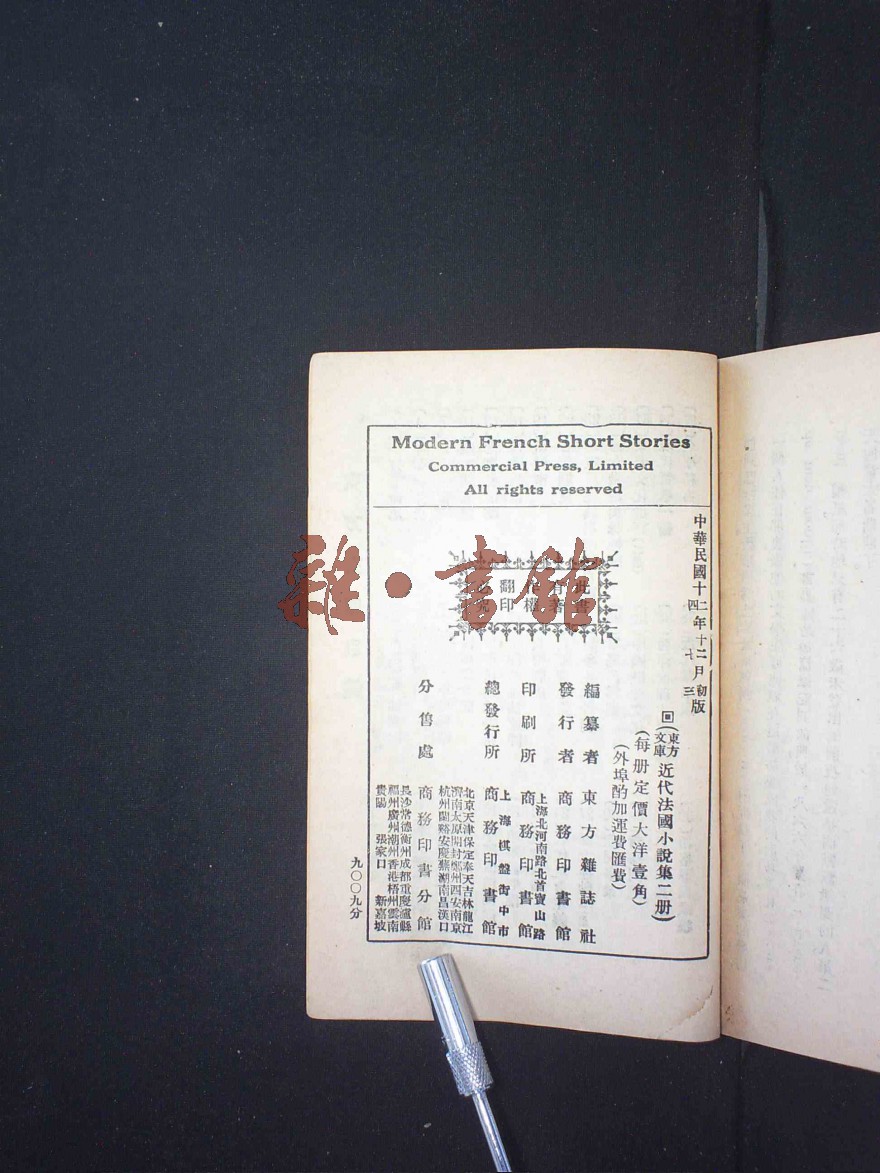 Modern French Short Stories
Commercial Press, Limited
All rights reserved
中華民國十二年十二月初版
四 十 三
回(東方文庫)近代法國小說集二册)
(每册定價大洋壹角)
(外埠酌加運費匯費)
此書
有著
作權
翻印
必究
編纂者 東方雜誌社
發行者 商務印書館
印刷所 上海北河南路北首寶山路 商務印書館
總發行所 上海棋盤街中市 商務印書館
分售處 商務印書分館
北京天津保定奉天吉林龍江
濟南太原開封鄭州西安南京
杭州蘭谿安慶蕪湖南昌漢口
長沙常德衡州成都重慶瀘縣
福州廣州潮州香港梧州雲南
貴陽 張家口 新嘉坡
九〇〇九分
雜·書館